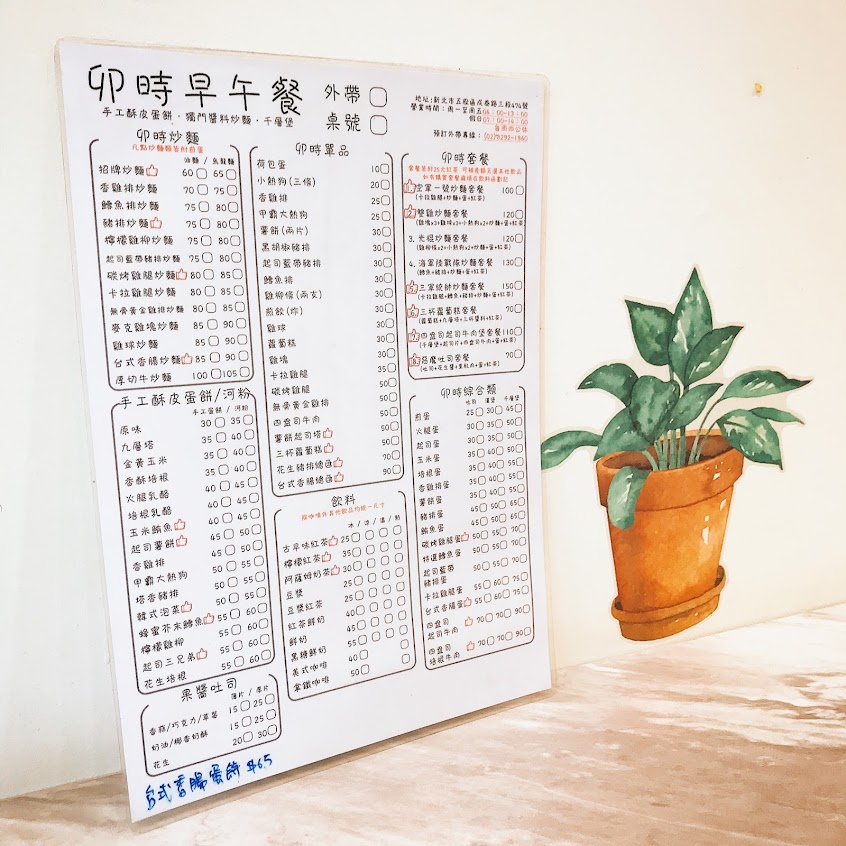 卯時早午餐
手工酥皮蛋餅・獨門醬料炒麵・千層堡
外帶
桌號
地址:新北市五股區成泰路三段494號
營業時間:周一至周五05:00-13:00
假日07:00-14:00
每周四公休
預訂外帶專線:(02)8292-1960
卯時炒麵
凡點炒麵類皆附煎蛋
油麵 / 烏龍麵
招牌炒麵 60 65
香雞排炒麵 70 75
鱈魚排炒麵 70 75
豬排炒麵 70 75
檸檬雞柳炒麵 75 80
起司藍帶豬排炒麵 75 80
碳烤雞腿炒麵 80 85
卡拉雞腿炒麵 80 85
無骨黃金雞排炒麵 80 85
麥克雞塊炒麵 85 90
雞球炒麵 85 90
台式香腸炒麵 85 90
厚切牛炒麵 100 105
手工酥皮蛋餅/河粉
手工蛋餅 / 河粉
原味 30 35
九層塔 35 40
金黃玉米 35 40
香酥培根 40 45
火腿乳酪 40 45
培根乳酪 40 45
玉米鮪魚 45 50
起司薯餅 45 50
香雞排 45 50
甲霸大熱狗 45 50
塔香豬排 50 55
韓式泡菜 50 55
蜂蜜芥末鱈魚 55 60
檸檬雞柳 55 60
起司三兄弟 55 60
花生培根 55 60
果醬吐司
薄片 / 厚片
香蒜/巧克力/草莓 15 25
奶油/椰香奶酥 15 25
花生 20 30
台式香腸蛋餅 $65
卯時單品
荷包蛋 10
小熱狗(三條) 20
香雞排 25
甲霸大熱狗 25
薯餅(兩片) 30
黑胡椒豬排 30
起司藍帶豬排 30
鱈魚排 30
雞柳條(兩支) 30
煎餃(炸) 30
雞球 30
蘿蔔糕 30
雞塊 30
卡拉雞腿
碳烤雞腿
無骨黃金雞排
四盎司牛肉
薯餅起司塔 50
三杯蘿蔔糕 50
花生豬排總匯 70
台式香腸總匯 90
飲料
除咖啡外其他飲品均統一尺寸
冰 / 涼 / 溫 / 熱
古早味紅茶 25
檸檬紅茶 35
阿薩姆奶茶 30
豆漿 25
豆漿紅茶 25
紅茶鮮奶 40
鮮奶 45
黑糖鮮奶 55
美式咖啡 40
拿鐵咖啡 50
卯時套餐
套餐皆附25元紅茶 可補差額元選其他飲品
如有購買套餐麻煩在飲料區劃記
1.空軍一號炒麵套餐 100
(卡拉雞腿+炒麵+蛋+紅茶)
2.雙雞炒麵套餐 120
(雞塊x3+雞球x3+小熱狗x2+炒麵+蛋+紅茶)
3.光棍炒麵套餐 120
(雞柳條x2+小熱狗x2+炒麵+蛋+紅茶)
4.海軍陸戰隊炒麵套餐 130
(鱈魚+豬排+炒麵+蛋+紅茶)
5.三軍統帥炒麵套餐 150
(卡拉雞腿+鱈魚+豬排+炒麵+蛋+紅茶)
6.三杯蘿蔔糕套餐 70
(蘿蔔糕+九層塔+三杯醬料+紅茶)
7.四盎司起司牛肉堡套餐 110
(千層堡+起司片+四盎司牛肉+蛋+紅茶)
8.惡魔吐司套餐 70
(吐司+花生醬+里肌肉+蛋+紅茶)
卯時綜合類
吐司 漢堡 千層堡
煎蛋 25 30 45
火腿蛋 30 35 50
起司蛋 30 35 50
玉米蛋
培根蛋
香雞排蛋
薯餅蛋
豬排蛋
鮪魚蛋
碳烤雞腿蛋 50 55 70
特選鱈魚蛋
起司藍帶
豬排蛋
卡拉雞腿蛋 55 60 75
台式香腸蛋 55 60 75
四盎司
起司牛肉 70 70 90
四盎司
培根牛肉 70 70 90